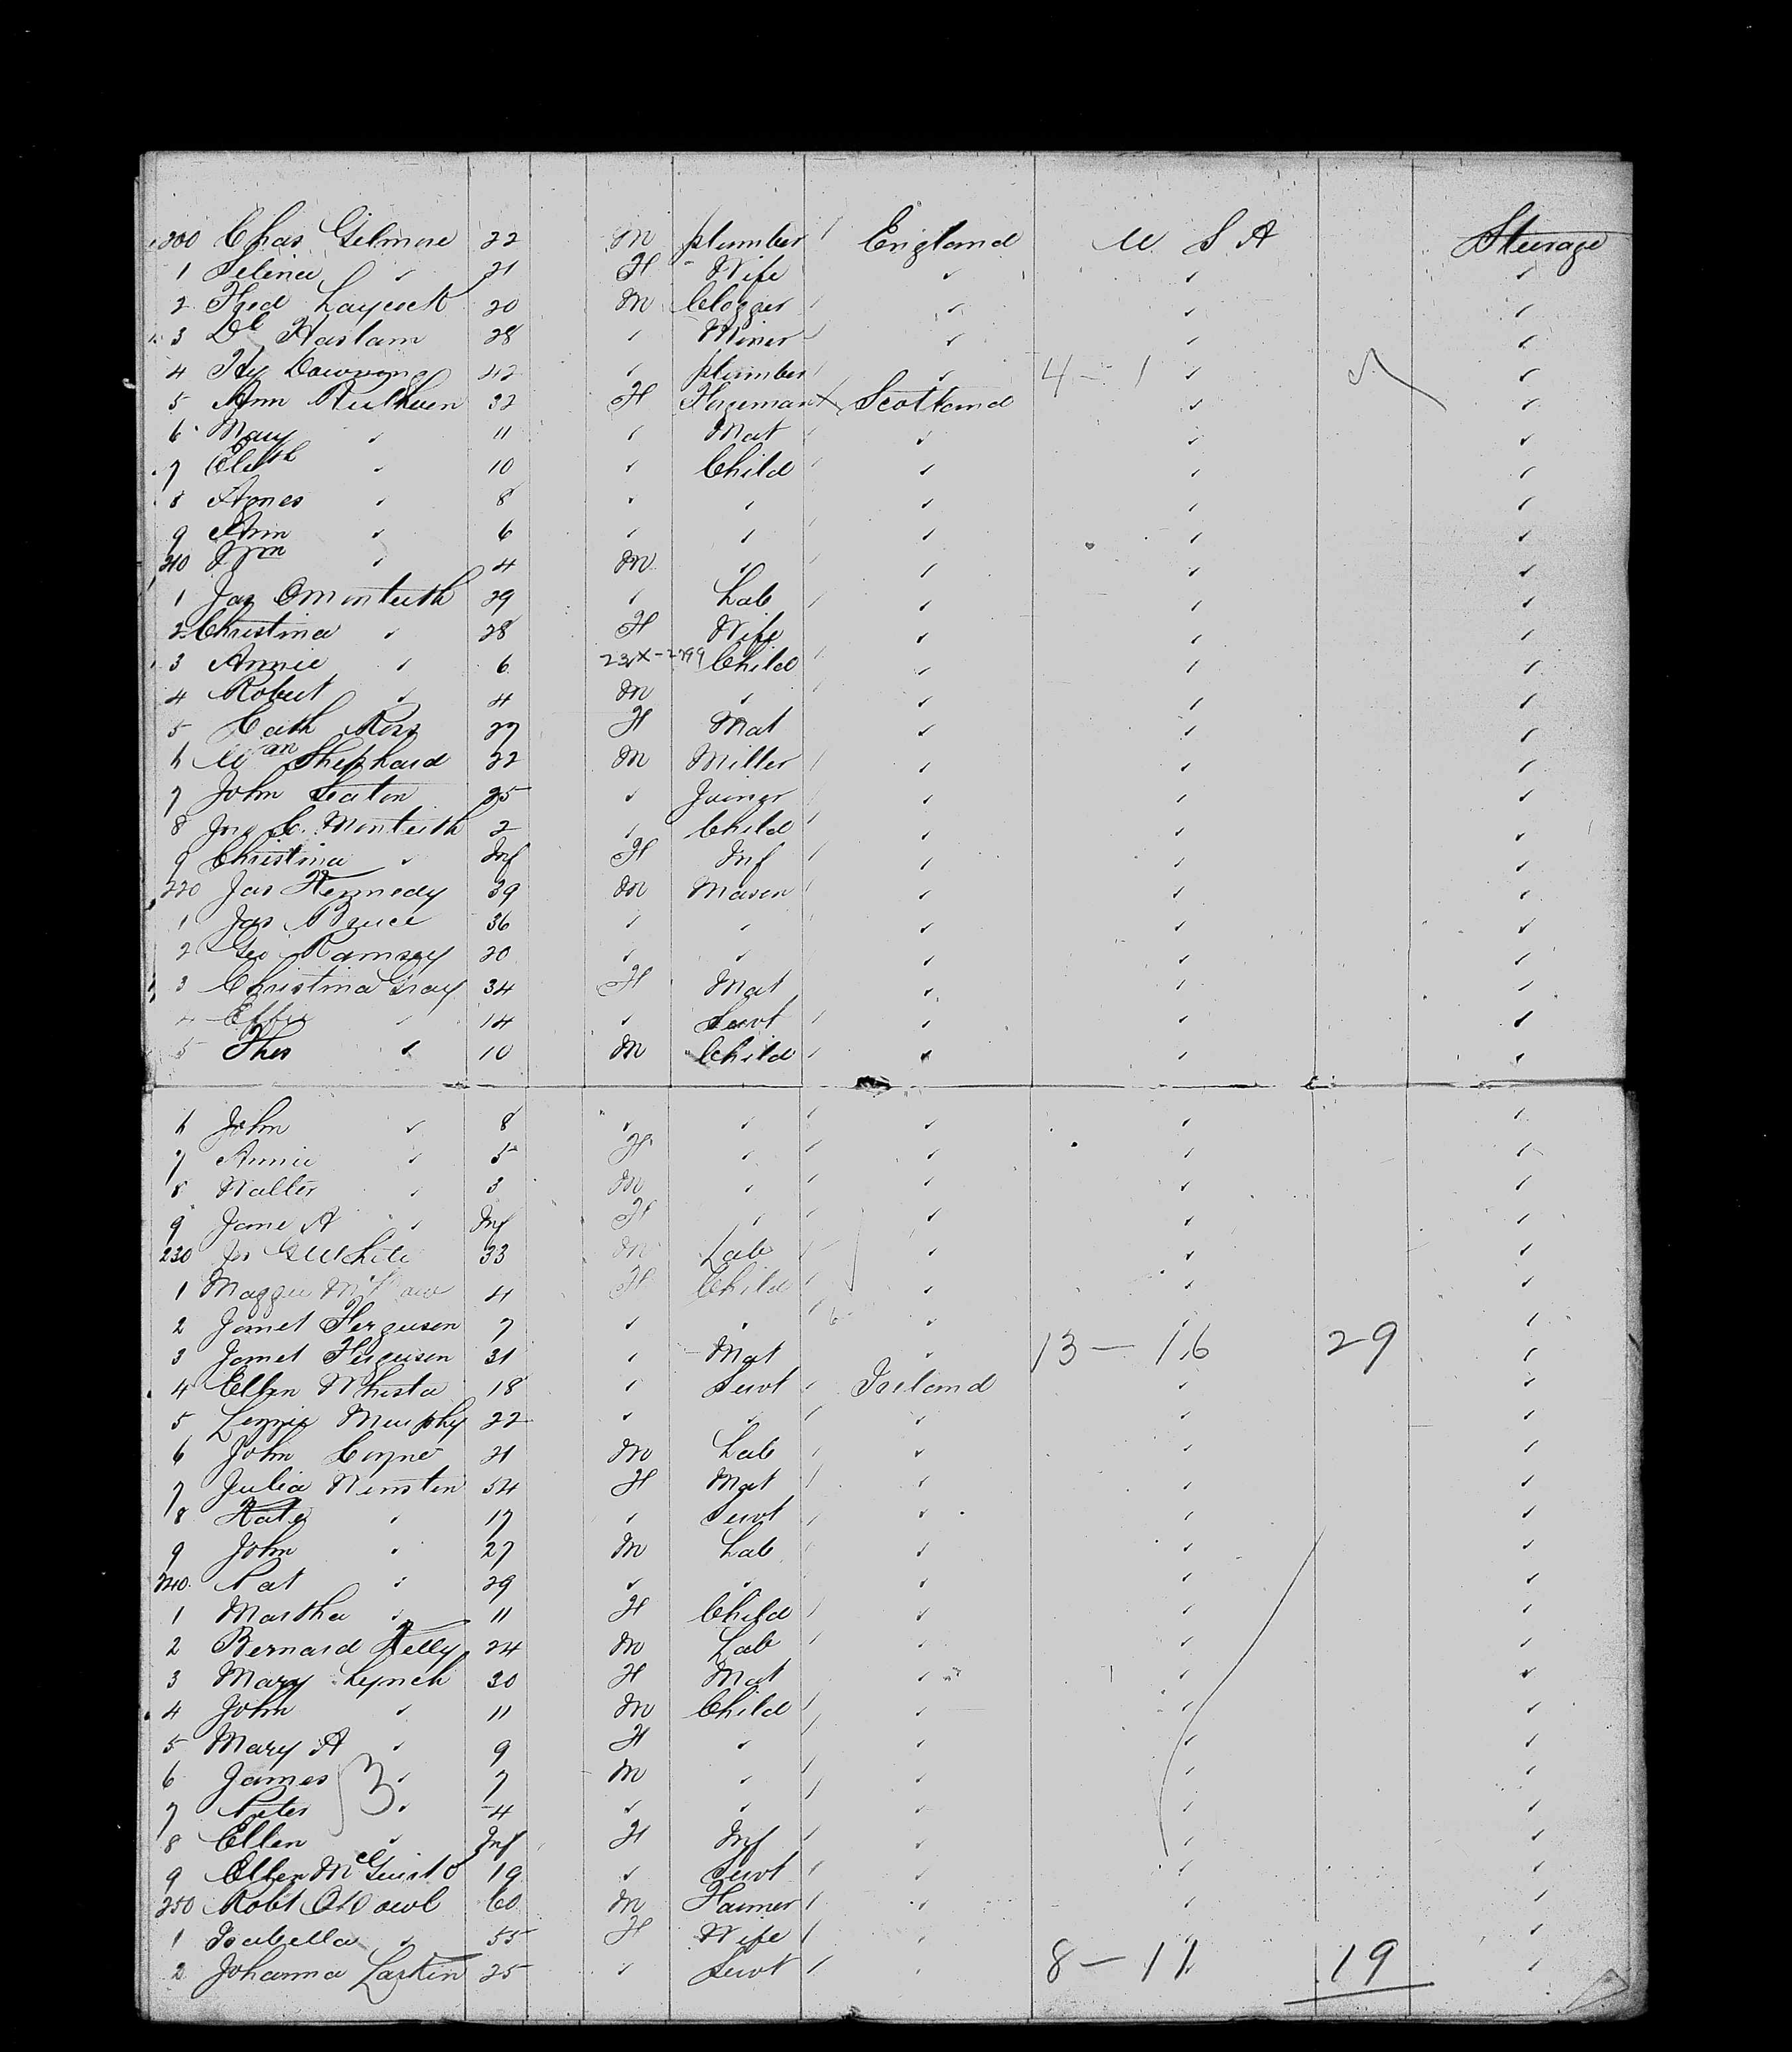 200 Chas Gilmore 22 M plumber / England U S A Steerage
1 Selina " 21 F Wife " " "
2 Fred Laycock 20 M Clogger / " " "
3 Dl Haslam 28 " Miner " " "
4 Hy Downing 42 " plumber / " 4 - 1 " 5 "
5 Ann Ruthven 32 F x Scotland " "
6 Mary " 11 " Mat " " "
7 Elizth " 10 " Child / " " "
8 Agnes " 8 " " " " "
9 Ann " 6 " " / " " "
210 Wm " 4 M " / " " "
1 Jas Monteith 29 " Lab / " " "
2 Christina " 28 F Wife " " "
3 Annie " 6 23x-2799 Child / " " "
4 Robert " 4 M " / " " "
5 Cath Ross 27 F Mat " " "
6 Wm Shephard 22 M Miller / " " "
7 John Seaton 25 " Joiner / " " "
8 Jno C. Monteith 2 " Child / " " "
9 Christina " Inf F Inf / " " "
220 Jas Kennedy 39 M Mason / " " "
1 Jas Bruce 36 " " " " "
2 Geo Ramsey 20 " " " " "
3 Christina Gray 34 F Mat " " "
4 Effie " 14 " Servt / " " "
5 Thos " 10 M Child / " " "
6 John " 8 " " / " " "
7 Annie " 5 F " / " " "
8 Walter " 3 M " / " " "
9 Jane A " Inf F " / " " "
230 White 33 M Lab / " " "
1 Maggie 4 F Child / " " "
2 Janet Ferguson 7 " " / " " "
3 Janet Ferguson 31 " Mat " 13 - 16 29 "
4 Ellen 18 " Servt / Ireland " "
5 Lizzie Murphy 22 " " / " " "
6 John Coyne 21 M Lab / " " "
7 Julia 54 F Mat / " " "
8 Kate " 17 " Servt / " " "
9 John " 27 M Lab / " " "
240 Pat " 29 " " / " " "
1 Martha " 11 F Child / " " "
2 Bernard Kelly 24 M Lab / " " "
3 Mary Lynch 30 F Mat " " "
4 John " 11 M Child / " " "
5 Mary A " 9 F " / " " "
6 James " 7 M " / " " "
7 Peter " 4 " " / " " "
8 Ellen " Inf F Inf / " " "
9 Ellen 19 " Servt / " " "
250 Robt 60 M Farmer / " " "
1 Isabella " 55 F Wife / " " "
2 Johanna Larkin 25 " Servt / " 8 - 11 19 "